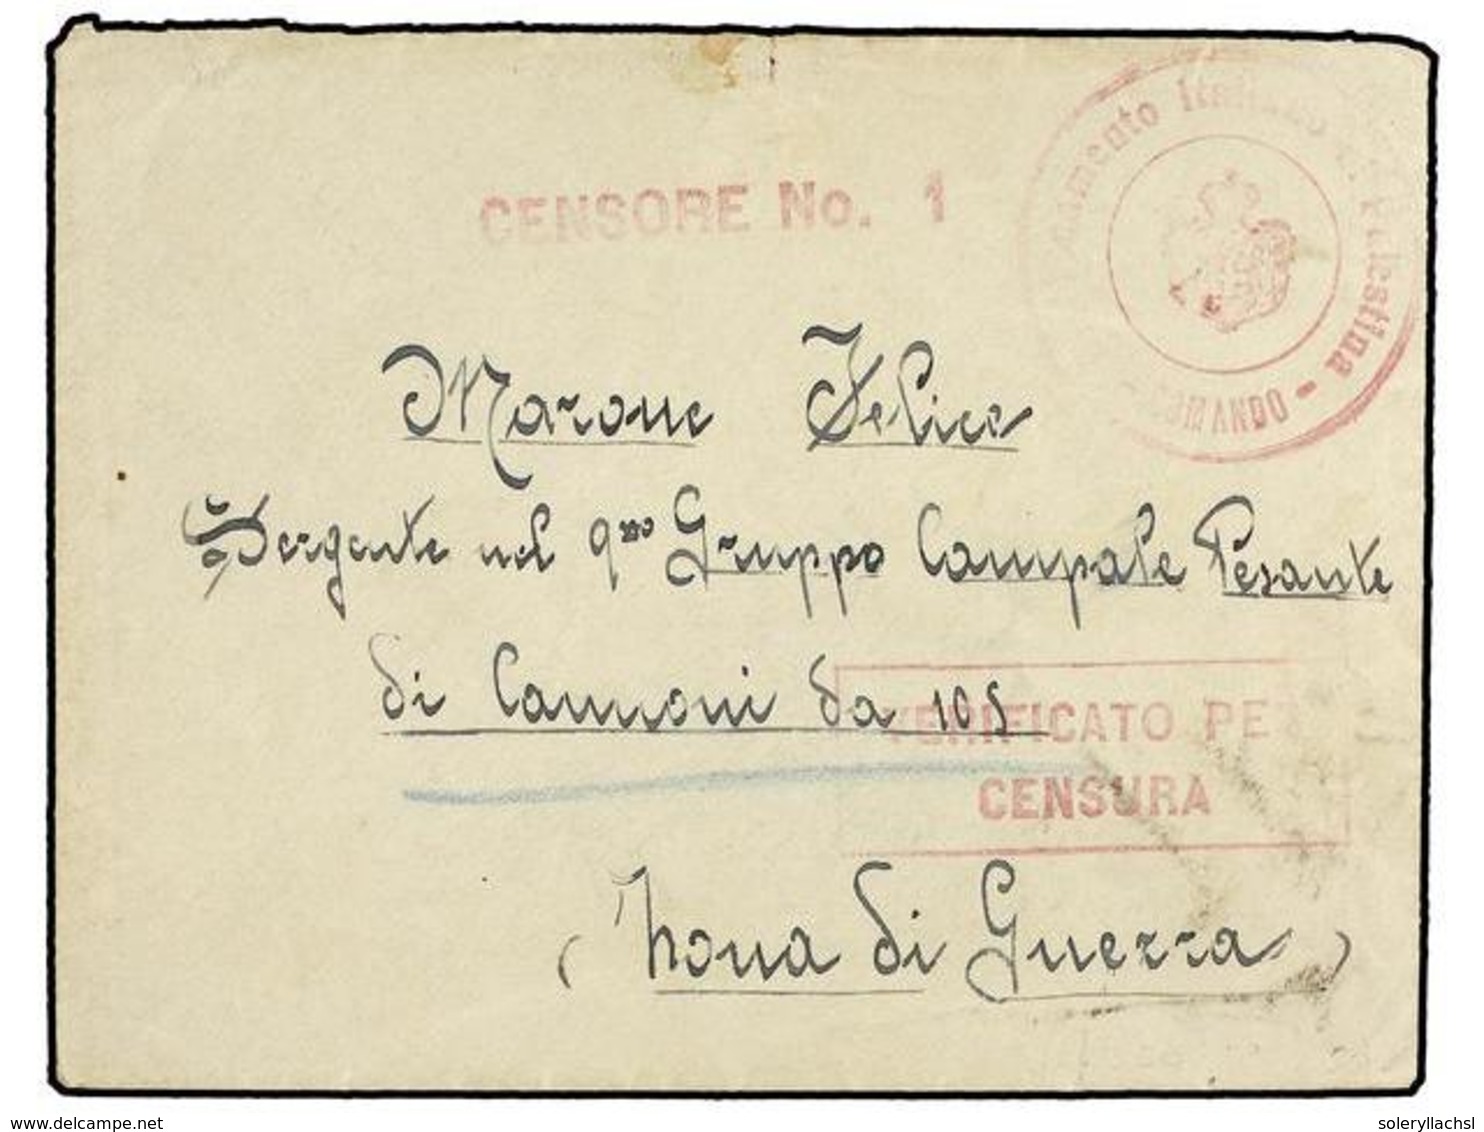 CENSORE No. 1
Palestina - COMANDO
Marone Felice
Sergente nel 9no Gruppo Campale Pesante
di Cannoni da 105
VERIFICATO PE
CENSURA
(Zona di Guerra)
www.delcampe.net
soleryllachsl